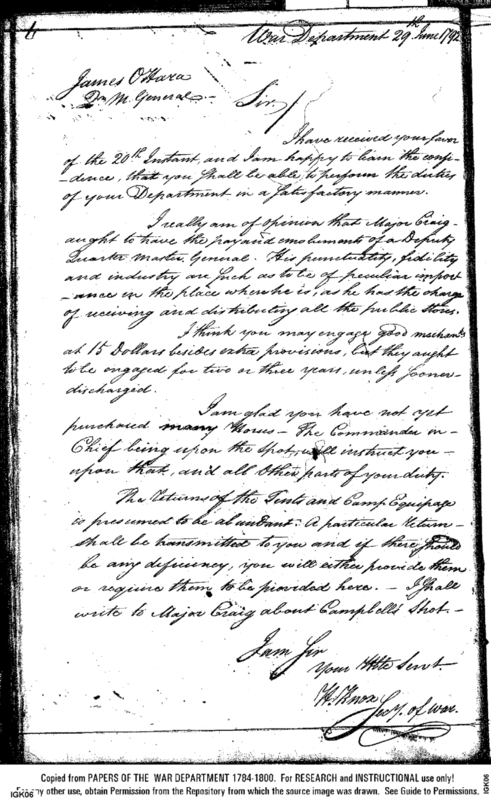 War Department 29th June 1792
James O'Hara
Qr M. General
Sir/
I have received your favor
of the 20th Instant, and I am happy to learn the confi-
-dence, that you shall be able to perform the duties
of your Department in a satisfactory manner.
I really am of opinion that Major Craig
aught to have the pay and emoluments of a Deputy
Quarter Master General. His punctuality, fidility
and industry are such as to be of peculiar impor
-ance in the place where he is, as he has the charge
of receiving and distributing all the public Stores.
I think you may engage good mechanics
at 15 Dollars besides extra provisions, but they aught
to be engaged for two or three years, unless sooner
discharged.
I am glad you have not yet
purchased many Horses – The Commander in
Chief being upon the spot, will instruct you
upon that, and all other parts of your duty.
The Returns of the Tents and Camp Equipage
is presumed to be abundant: A particular Return
shall be transmitted to you and if there should
be any deficiency, you will either provide them
or require them to be provided here. – I shall
write to Major Craig about Campbell's Shot –
I am Sir
Your Hble Servt
H. Knox
Secy. of War.
Copied from PAPERS OF THE WAR DEPARTMENT 1784-1800. For RESEARCH and INSTRUCTIONAL use only!
any other use, obtain Permission from the Repository from which the source image was drawn. See Guide to Permissions.
IGK06
IGK06